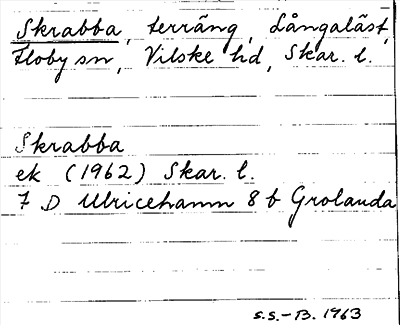 Skrabba, terräng, Långaläst,
Floby sn, Vilske hd, Skar. l.
Skrabba
ek (1962) Skar. l.
7 D Ulricehamn 8 b Grolanda
S.S.-B. 1963